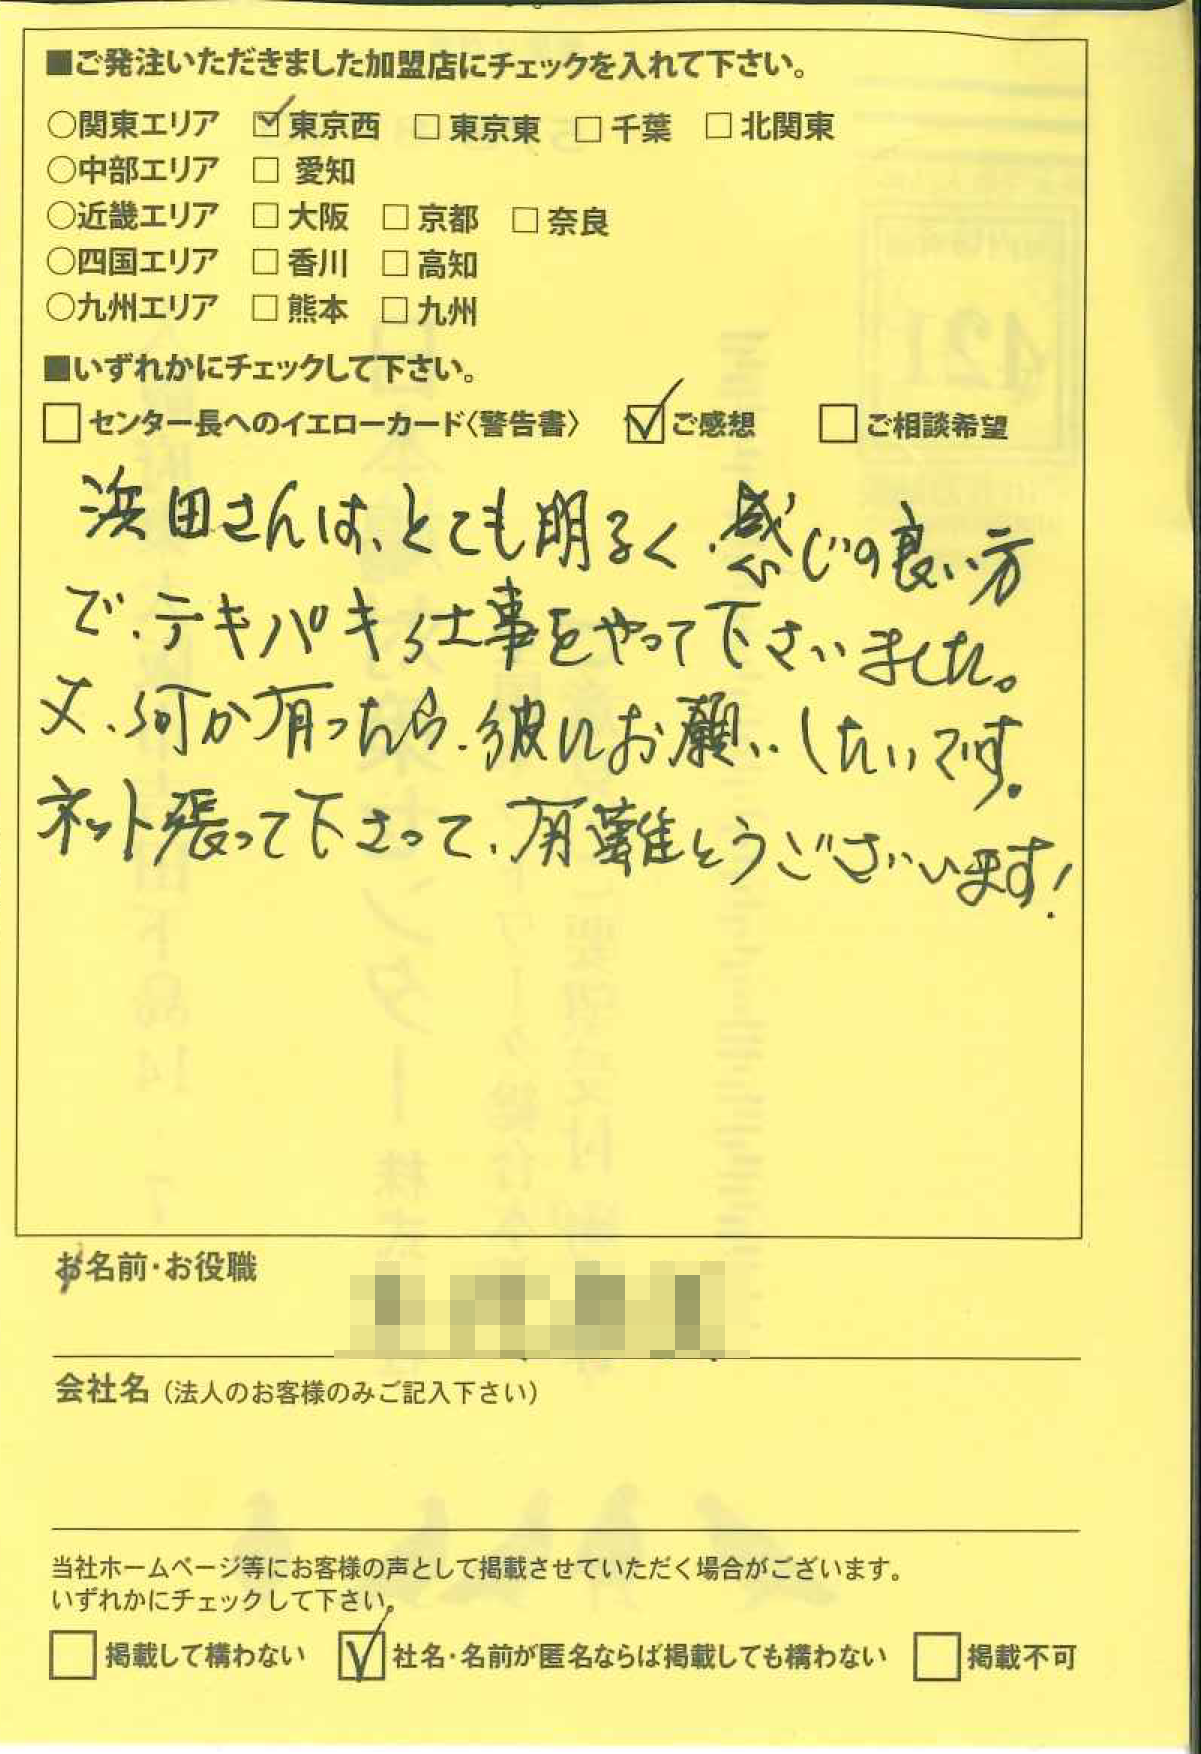 ■ご発注いただきました加盟店にチェックを入れて下さい。
○関東エリア ☑東京西 □東京東 □千葉 □北関東
○中部エリア □愛知
○近畿エリア □大阪 □京都 □奈良
○四国エリア □香川 □高知
○九州エリア □熊本 □九州
■いずれかにチェックして下さい。
□センター長へのイエローカード〈警告書〉 ☑ご感想 □ご相談希望
浜田さんは、とても明るく、感じの良い方
で、テキパキ仕事をやって下さいました。
又、何か有ったら、彼にお願いしたいです。
ネット張って下さって、有難とうございます!
お名前・お役職
会社名(法人のお客様のみご記入下さい)
当社ホームページ等にお客様の声として掲載させていただく場合がございます。
いずれかにチェックして下さい。
□掲載して構わない ☑社名・名前が匿名ならば掲載しても構わない □掲載不可